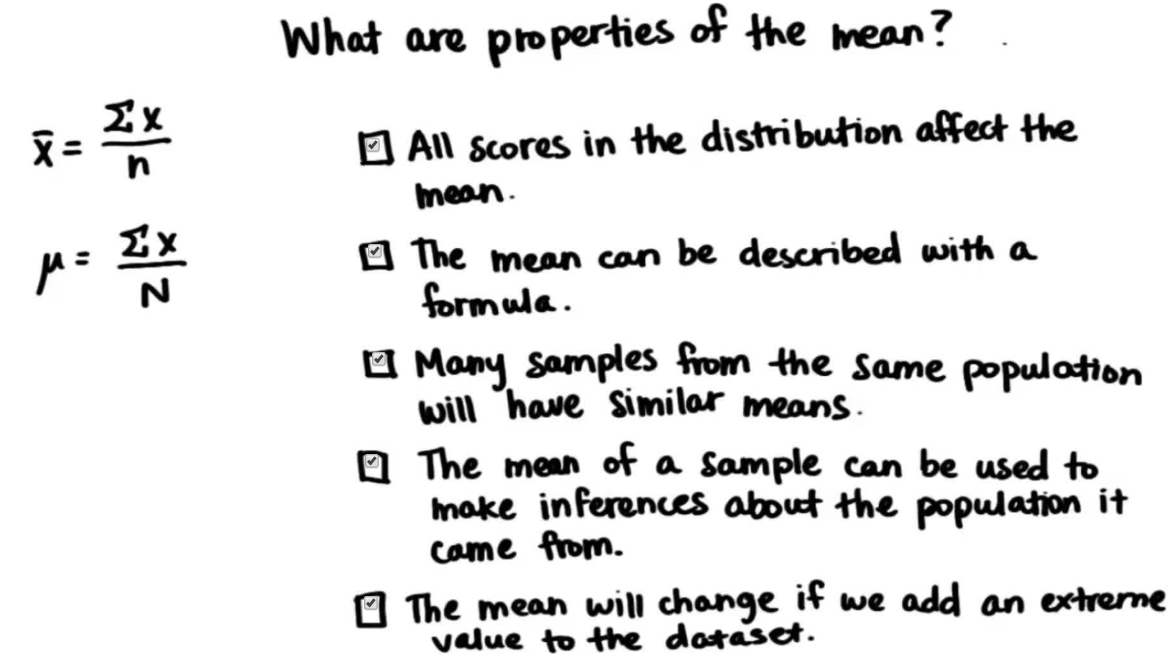 What are properties of the mean?
x̄ = Σx / n
μ = Σx / N
All scores in the distribution affect the
mean.
The mean can be described with a
formula.
Many samples from the same population
will have similar means.
The mean of a sample can be used to
make inferences about the population it
came from.
The mean will change if we add an extreme
value to the dataset.